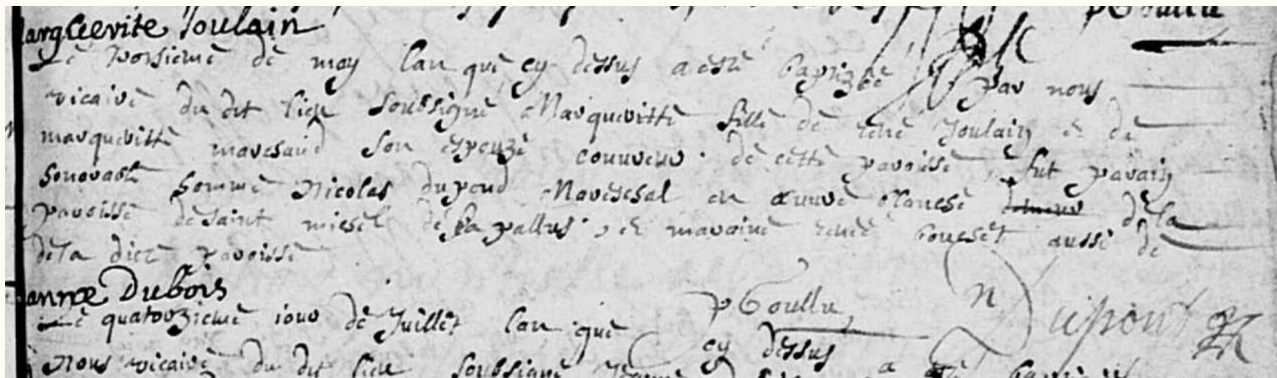 Marguerite Joulain PGoullu
Le troisieme de may lan que cy dessus a esté baptizée par nous
vicaire du dit lieu soubsigné Margueritte fille de rené Joulain et de
margueritte maresaud son espouze couvreur de cette paroisse, fut parain
honorable homme Nicolas dupond Mareschal en œuvre blanche de la
paroisse de saint michel de la pallus, et maraine renée bousset aussi de
de la dite paroisse
Jeanne Dubois PGoullu n Dupont
Le quatorzieme iour de Juillet lan que cy dessus
Nous vicaire du dit lieu soussigné a esté